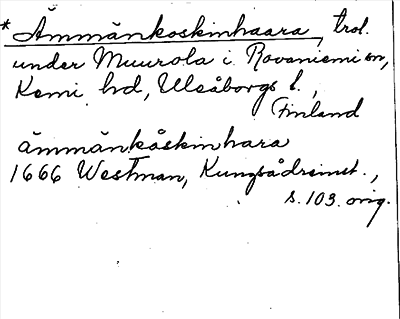 * Ämmänkoskinhaara, trol.
under Muurola i Rovaniemi sn,
Kemi hd, Uleåborgs l.,
Finland
ämmänkåskinhara
1666 Westman, Kungsådreinst.,
s. 103. orig.